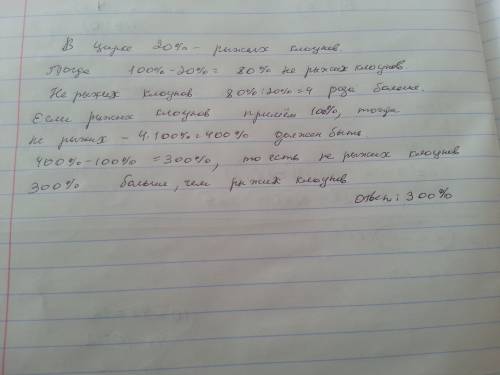 В цирке 20% - рыжих клоунов.
Тогда 100%-20%= 80% не рыжих клоунов.
Не рыжих клоунов 80%:20%=4 раза больше.
Если рыжих клоунов примем 100%, тогда
не рыжих - 4·100%=400% должен быть
400%-100% =300%, то есть не рыжих клоунов
300% больше, чем рыжих клоунов
Ответ: 300%